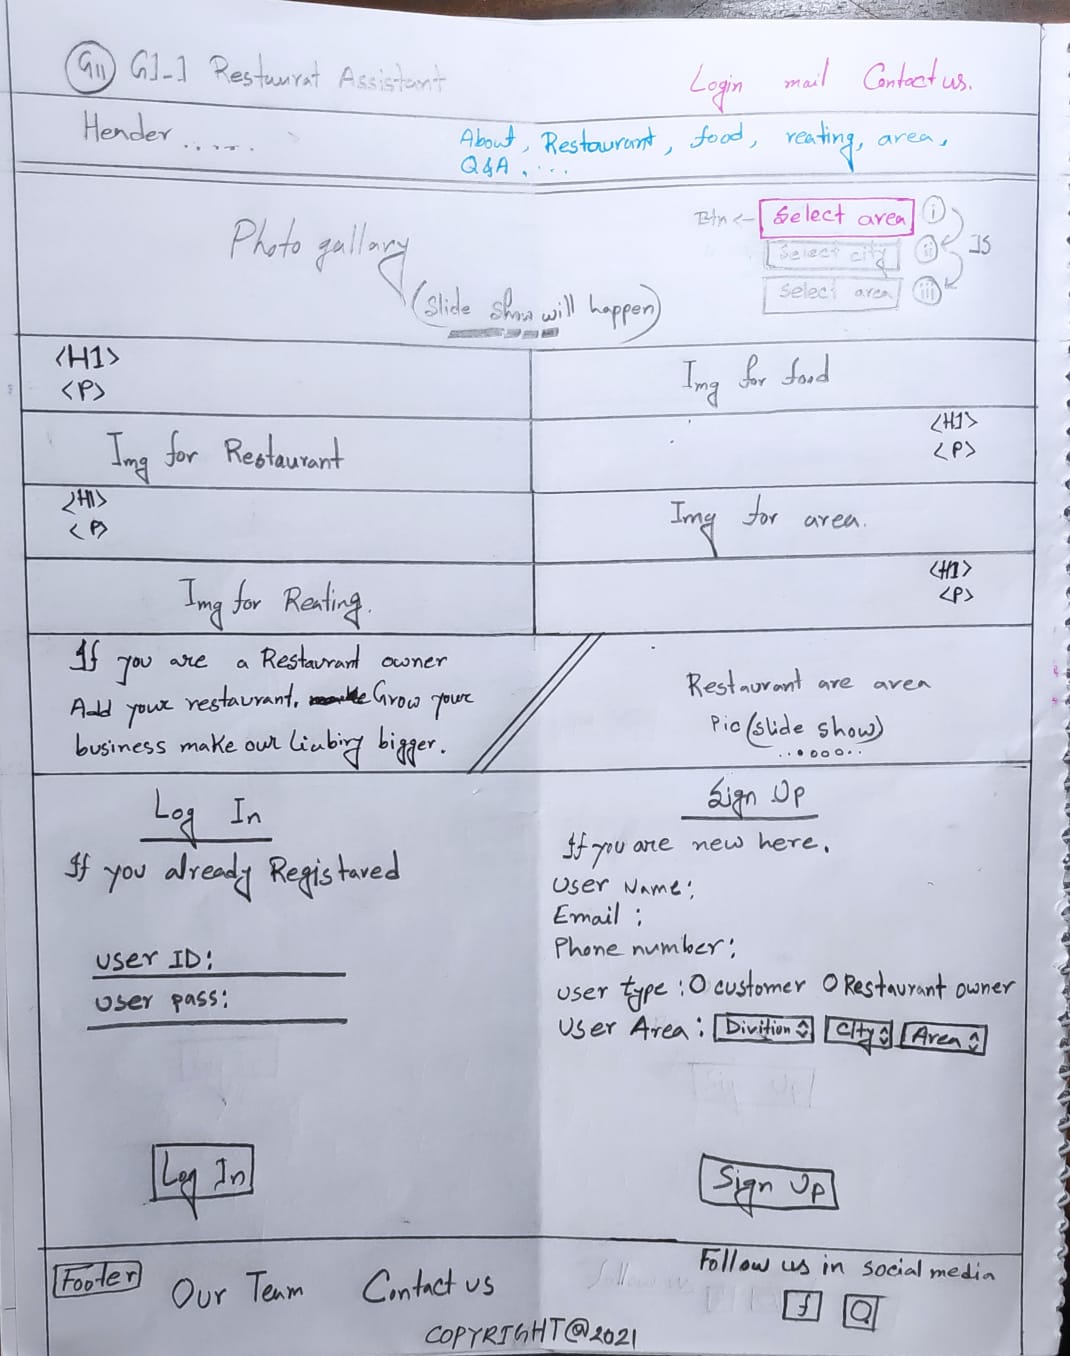 G11 G1-1 Restaurat Assistant
Login mail Contact us.
Hender .....
About, Restaurant, food, reating, area,
Q&A, ...
Photo gallary
(Slide show will happen)
Btn <- Select area i
Select city ii JS
Select area iii
<H1>
<P>
Img for food
Img for Restaurant
<H1>
<P>
<H1>
<P>
Img for area.
Img for Reating.
<H1>
<P>
If you are a Restaurant owner
Add your restaurant. Grow your
business make our bigger.
Restaurant are area
Pic (slide show)
Log In
If you already Registared
User ID:
User pass:
Log In
Sign Up
If you are new here.
User Name:
Email :
Phone number:
User type : O customer O Restaurant owner
User Area : Divition City Area
Sign Up
Footer Our Team Contact us
Follow us in social media
f
COPYRIGHT@2021